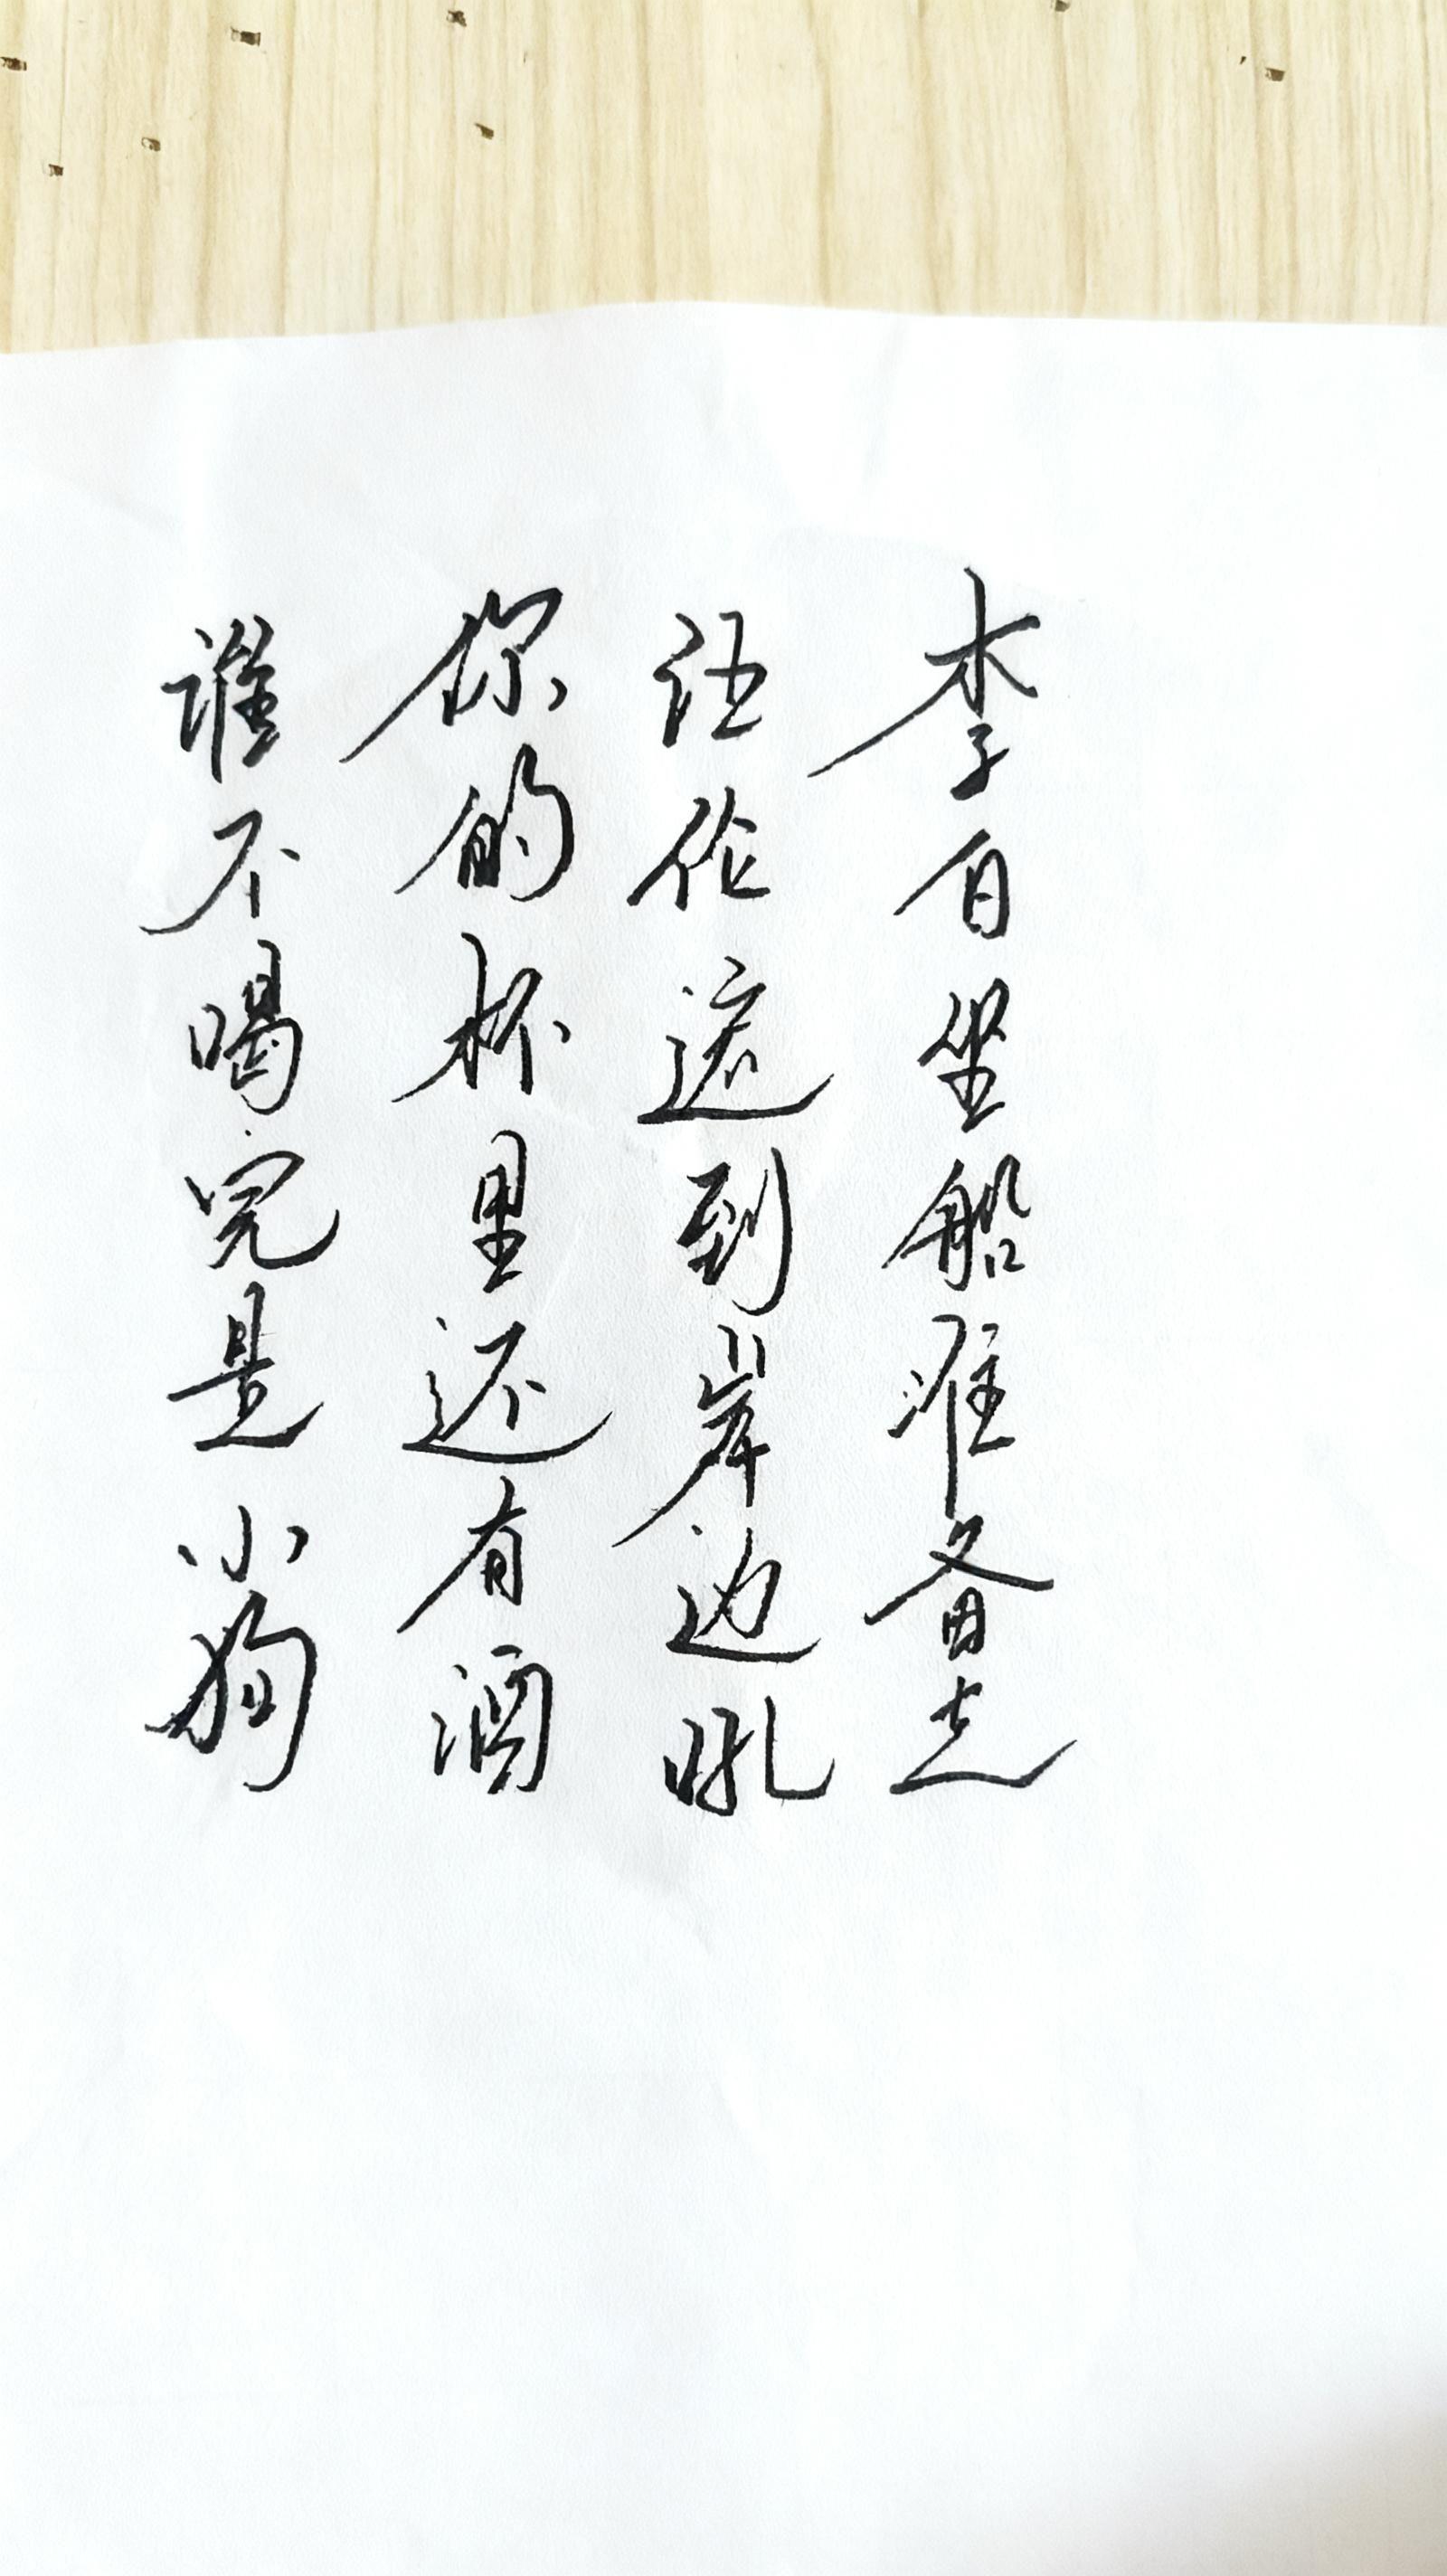 李白坐船准备走
汪伦追到岸边吼
你的杯里还有酒
谁不喝完是小狗